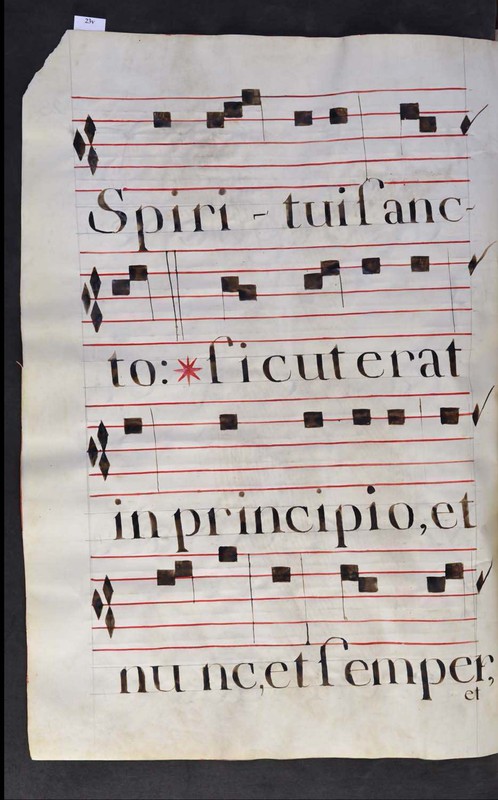 23v
Spiri - tui ſanc-
to: * ſicut erat
in principio, et
nunc, et ſemper,
et